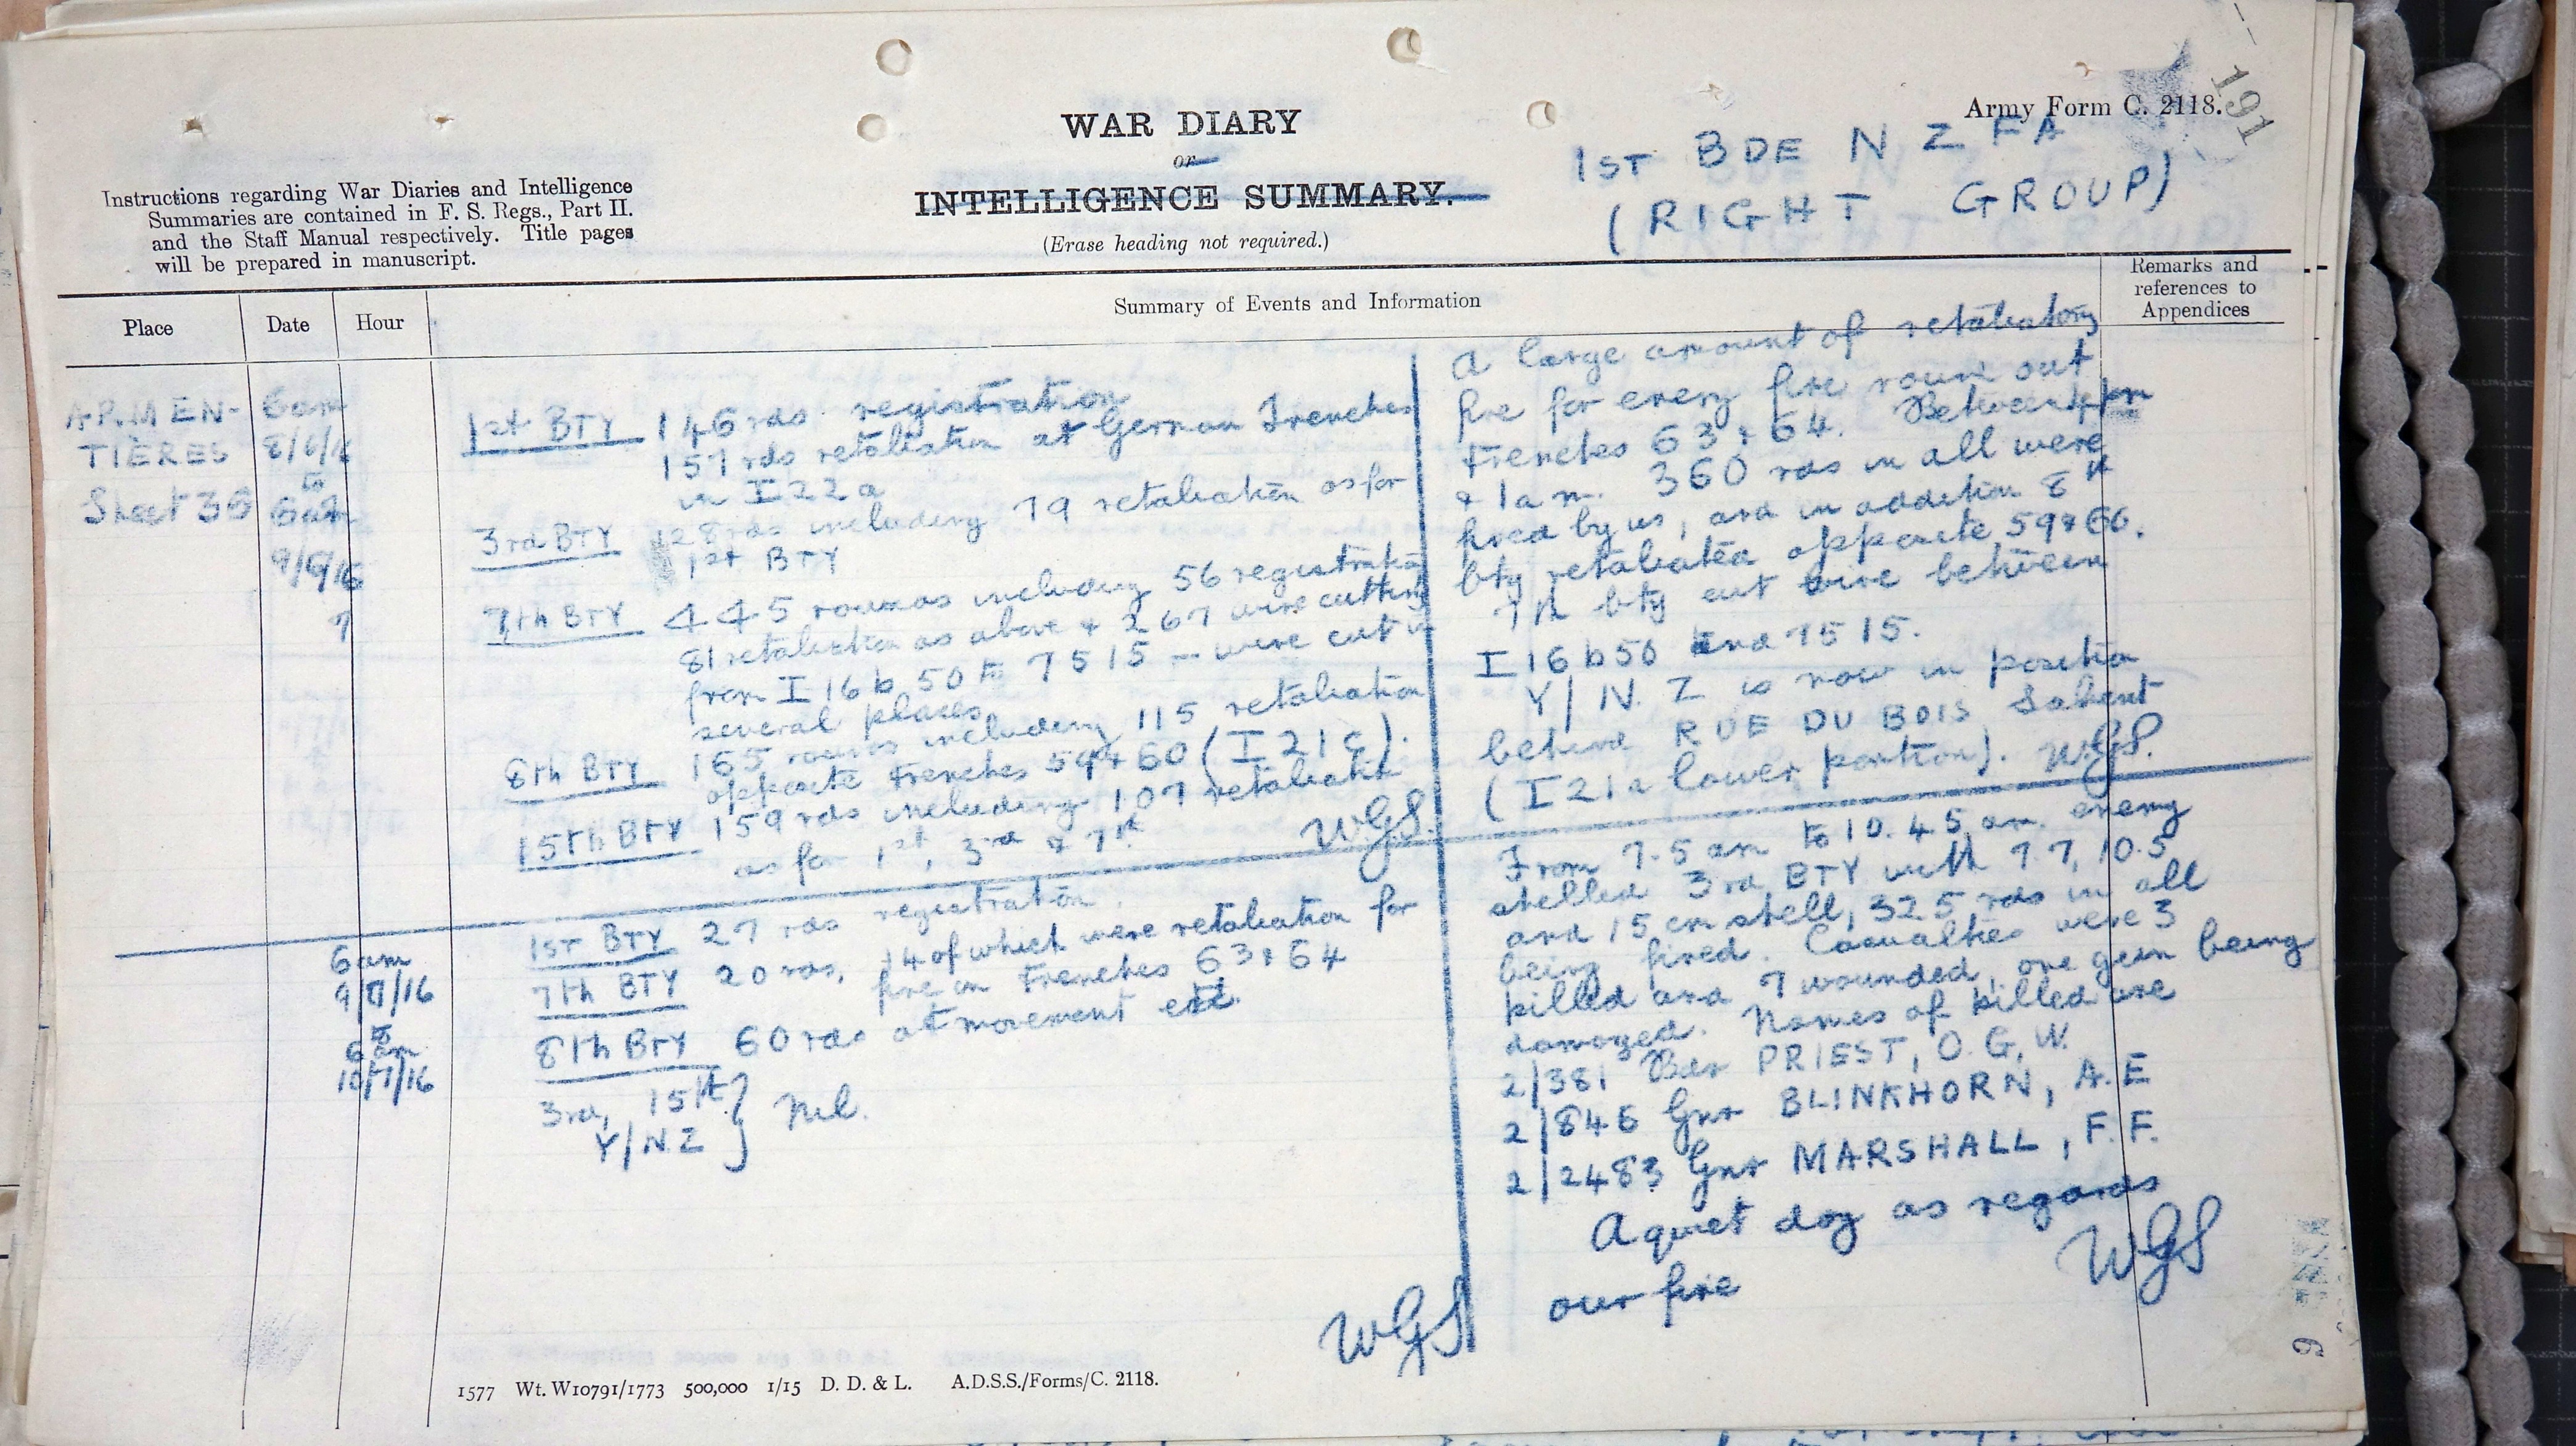 191
Army Form C. 2118.
WAR DIARY
or
INTELLIGENCE SUMMARY.
(Erase heading not required.)
1ST BDE N Z FA
(RIGHT GROUP)
Instructions regarding War Diaries and Intelligence
Summaries are contained in F. S. Regs., Part II.
and the Staff Manual respectively. Title pages
will be prepared in manuscript.
Place
Date
Hour
Summary of Events and Information
Remarks and
references to
Appendices
ARMEN-
TIÈRES
Sheet 36
6am
8/6/16
to
6am
9/6/16
7
1st BTY 146 rds registration
157 rds retaliation at German Trenches
in I 22 a
3rd BTY 128 rds including 79 retaliation as for
1st BTY
7th BTY 445 rounds including 56 registration
81 retaliation as above & 267 wire cutting
from I 16 b 50 to 7515 — were cut in
several places
8th BTY 165 rounds including 115 retaliation
opposite Trenches 59 & 60 (I 21 c).
15th BTY 159 rds including 107 retaliation
as for 1st, 3rd & 7th
WGS.
A large amount of retaliatory
fire for every fire round out
Trenches 63 & 64. Between 4 pm
& 1 am. 360 rds in all were
fired by us, and in addition 8th
bty retaliated opposite 59 & 60.
7th bty cut wire between
I 16 b 50 and 7515.
Y/N.Z is now in position
behind RUE DU BOIS Salient
(I 21 a lower portion). WGS.
6am
9/7/16
to
6am
10/7/16
1ST BTY 27 rds registration.
7th BTY 20 rds, 14 of which were retaliation for
fire on Trenches 63 & 64
8th BTY 60 rds at movement etc.
3rd, 15th
Y/N.Z } Nil.
WGS
From 7.5 am to 10.45 am. enemy
shelled 3rd BTY with 7.7, 10.5
and 15 cm shell, 325 rds in all
being fired. Casualties were 3
killed and 7 wounded, one gun being
damaged. Names of killed are
2/381 Bdr PRIEST, O.G.W.
2/846 Gnr BLINKHORN, A.E
2/2483 Gnr MARSHALL, F.F.
A quiet day as regards
our fire
WGS
1577 Wt. W10791/1773 500,000 1/15 D. D. & L. A.D.S.S./Forms/C. 2118.